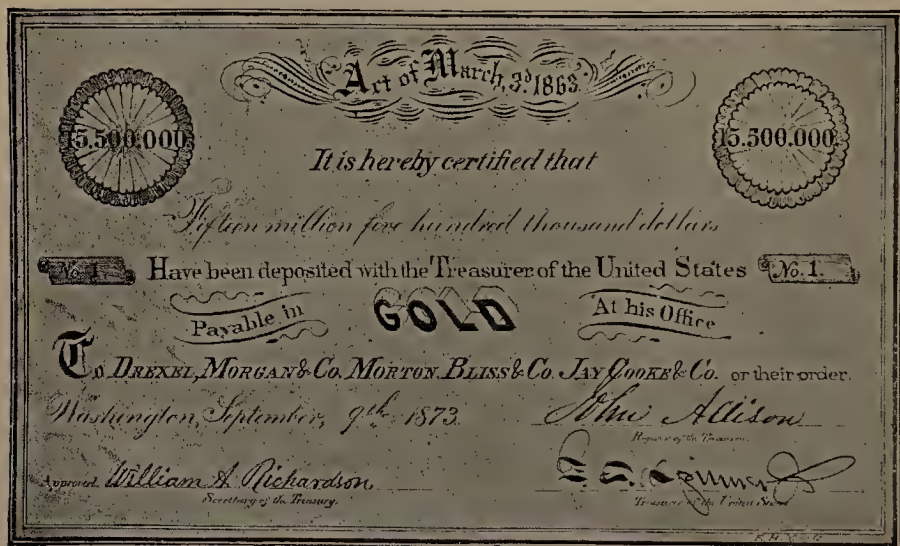 Act of March, 3d 1863.
15.500.000 15.500.000
It is hereby certified that
Fifteen million five hundred thousand dollars
No. 1. Have been deposited with the Treasurer of the United States No. 1.
Payable in GOLD At his Office
To DREXEL, MORGAN & CO. MORTON BLISS & CO. JAY COOKE & CO. or their order.
Washington, September, 9th 1873. John Allison
Register of the Treasury.
Approved William A. Richardson F. E. Spinner
Secretary of the Treasury. Treasurer of the United States